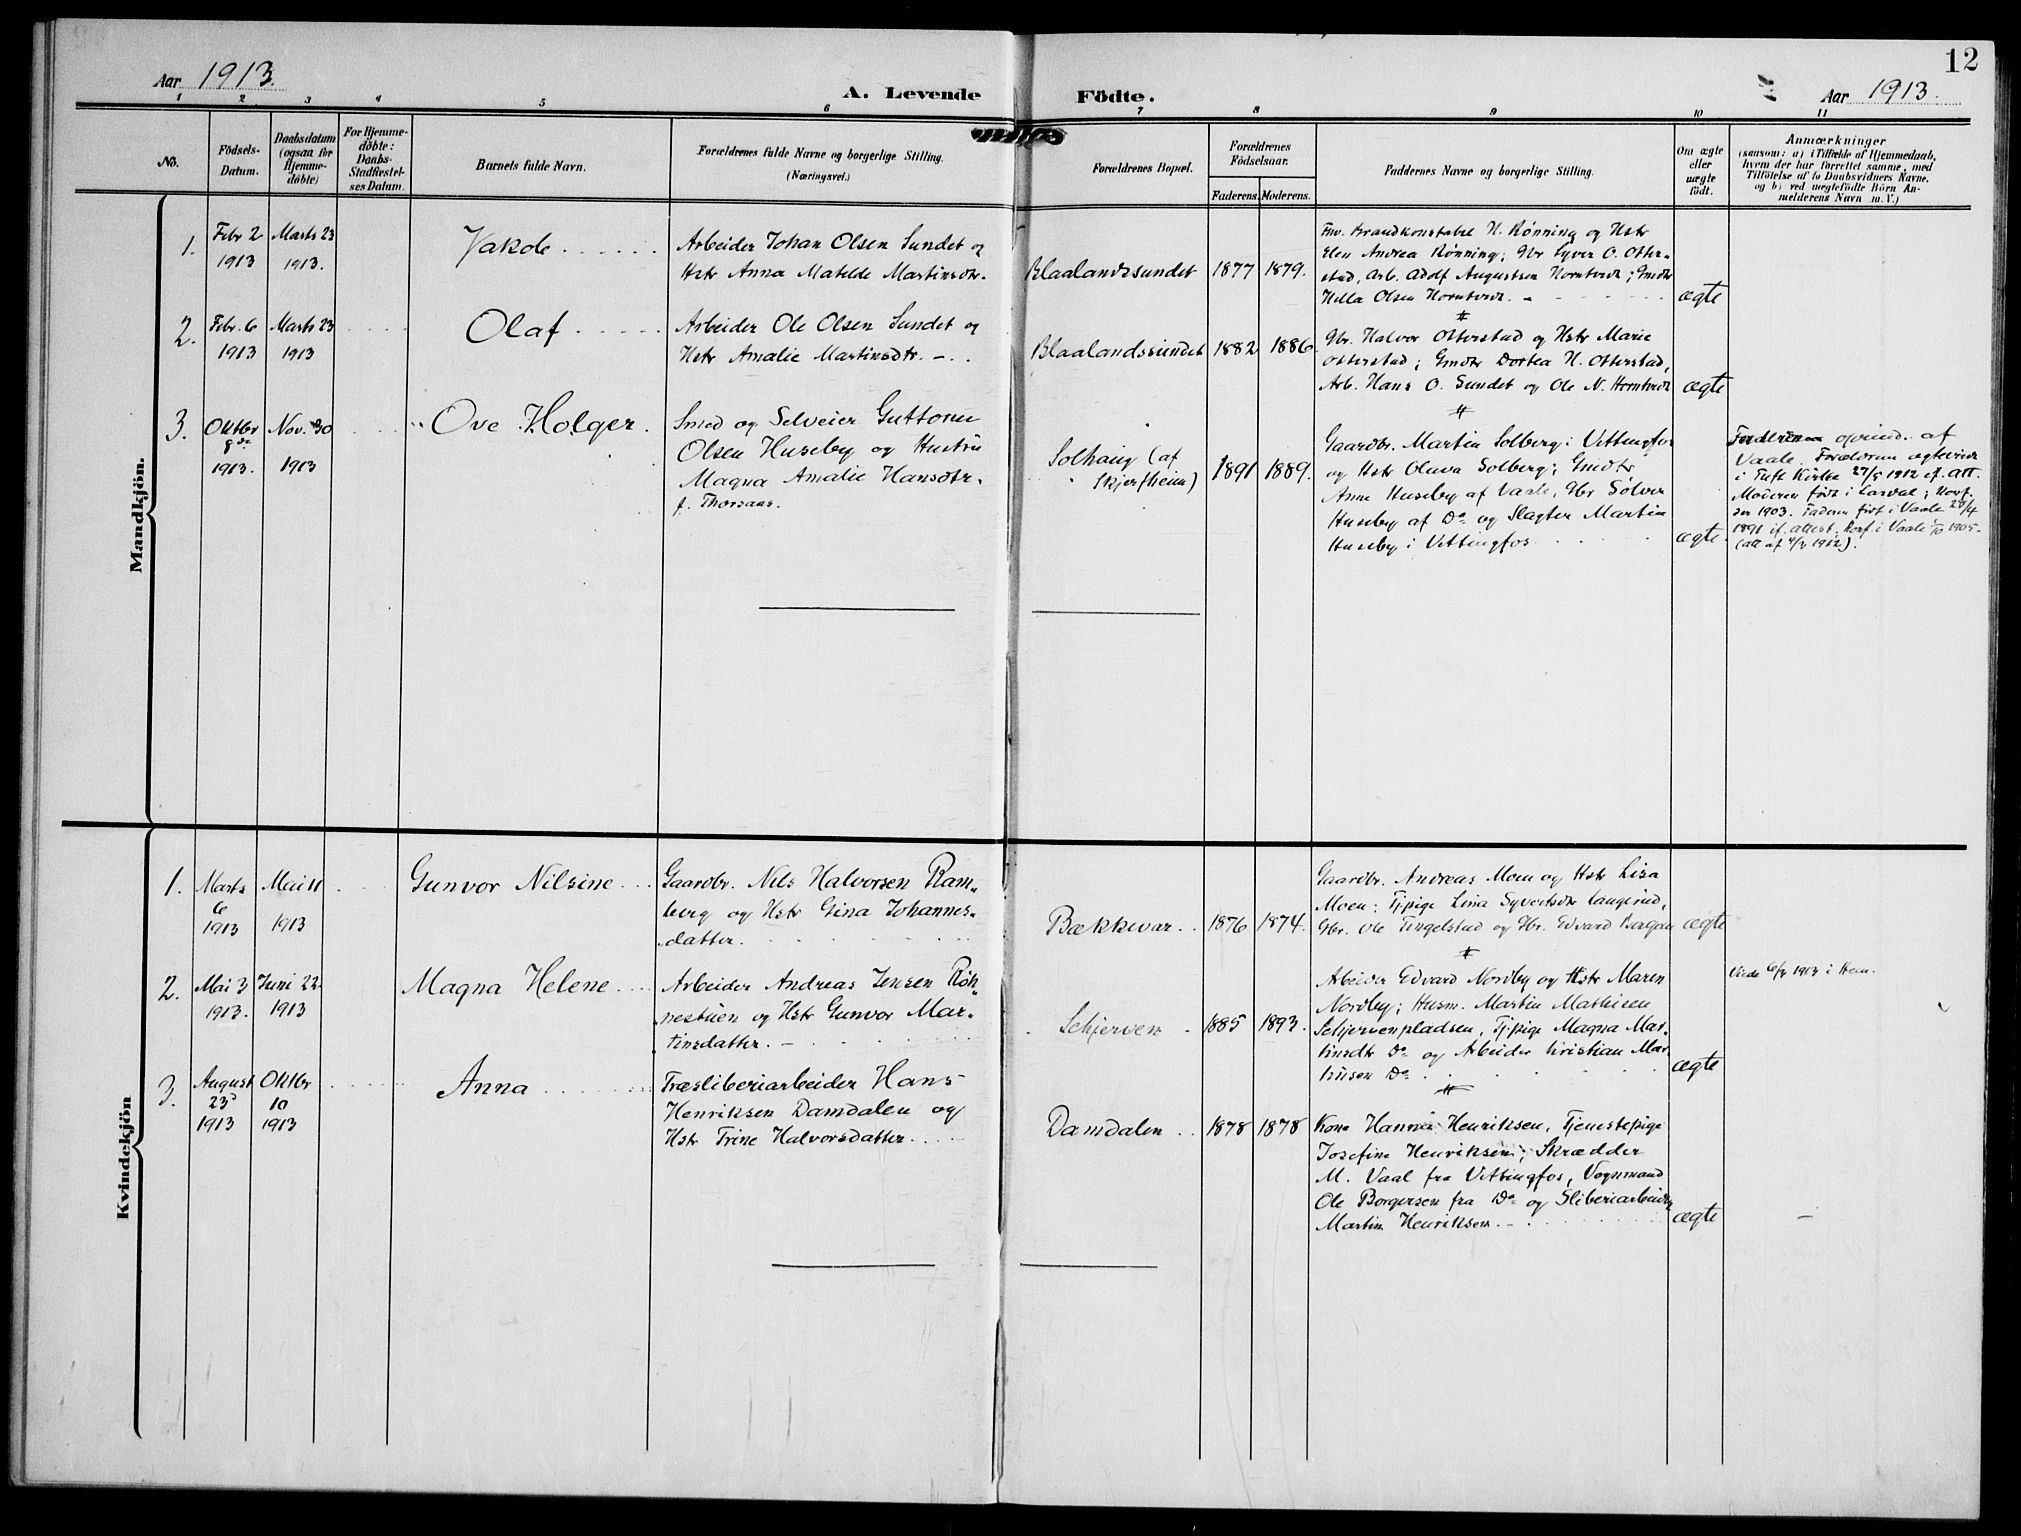 12
Aar 1913.
A. Levende Födte.
Aar 1913.
1 2 3 4 5 6 7 8 9 10 11
No.
Födsels-
Datum.
Daabsdatum
(ogsaa for
Hjemme-
döbte)
For Hjemme-
döbte:
Daabs-
Stadfæstel-
ses Datum.
Barnets fulde Navn.
Forældrenes fulde Navne og borgerlige Stilling.
(Næringsvei.)
Forældrenes Bopæl.
Forældrenes
Födselsaar.
Faderens. Moderens.
Faddernes Navne og borgerlige Stilling.
Om ægte
eller
uægte
födt.
Anmærkninger
(saasom: a) i Tilfælde af Hjemmedaab,
hvem der har forrettet samme, med
Tilföielse af to Daabsvidners Navne.
og b) ved uægtefödte Börn An-
melderens Navn m. V.)
Mandkjön.
1.
Febr 2
1913
Marts 23
1913.
Jakob
Arbeider Johan Olsen Sundet og
Hstr Anna Matilde Martinsdtr.
Blaalandssundet
1877
1879.
Fhv. Brandkonstabel N. Rønning og Hstr
Elen Andrea Rønning; Gbr Syver O. Otter-
stad, Arb. Adolf Augustsen Horntvedt; Gmdtr
Hella Olsen Horntvedt.
ægte
2.
Febr. 6
1913
Marts 23
1913
Olaf
Arbeider Ole Olsen Sundet og
Hstr Amalie Martinsdtr.
Blaalandssundet
1882
1886
Gbr. Halvor Otterstad og Hstr Marie
Otterstad; Gmdtr Dortea H. Otterstad,
Arb. Hans O. Sundet og Ole N. Horntvedt
ægte
3.
Oktbr
8de
1913.
Nov. 30
1913
Ove Holger.
Smed og Selveier Guttorm
Olsen Huseby og Hustru
Magna Amalie Hansdtr.
f. Thorsaas.
Solhaug (af
Skjerfheim)
1891
1889.
Gaardbr. Martin Solberg i Vittingfos
og Hstr Oluva Solberg; Gmdtr
Anne Huseby af Vaale, Gbr Sølver
Huseby af Do og Slagter Martin
Huseby i Vittingfos
ægte
Faderen oprind. af
Vaale. Forældrene ægteviede
i Tuft Kirke 27/5 1912 if. att.
Moderen født i Lardal; Konf.
1903. Faderen født i Vaale 28/4
1891 if. attest. Konf. i Vaale 1/10 1905.
(att af 4/3 1912).
Kvindekjön
1.
Marts
6
1913
Mai 11
1913
Gunvor Nilsine
Gaardbr. Nils Halvorsen Ram-
berg og Hstr Gina Johannes-
datter.
Bækkevar
1876
1874.
Gaardbr. Andreas Moen og Hstr Lisa
Moen; Tj.pige Lina Syvertsdtr Langerud,
Gbr. Ole Tingelstad og Gbr. Edvard Bergan
ægte
2.
Mai 3
1913.
Juni 22
1913
Magna Helene
Arbeider Andreas Jensen Røn-
nestuen og Hstr Gunvor Mar-
tinsdatter.
Schjerven
1885
1893.
Abeider Edvard Nordby og Hstr Maren
Nordby; Husm. Martin Mathisen
Schjervenpladsen, Tj.pige Magna Mar-
tinsdtr Do og Arbeider Kristian Mar-
tinsen Do
ægte
Viede 6/4 1913 i Hem.
3.
August
23
1913
Oktbr
10
1913
Anna
Træsliberiarbeider Hans
Henriksen Damdalen og
Hstr Trine Halvorsdatter.
Damdalen
1878
1878
Kone Hanna Henriksen, Tjenestepige
Josefine Henriksen; Skrædder
M. Vaal fra Vittingfos, Vognmand
Ole Borgersen fra Do og Sliberiarbeider
Martin Henriksen
ægte